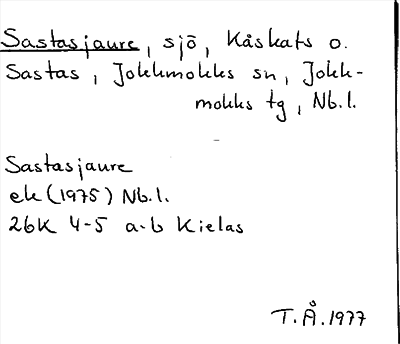 Sastasjaure, sjö, Kåskats o.
Sastas, Jokkmokks sn, Jokk-
mokks tg, Nb.l.
Sastasjaure
ek (1975) Nb.l.
26K 4-5 a-b Kielas
T.Å.1977